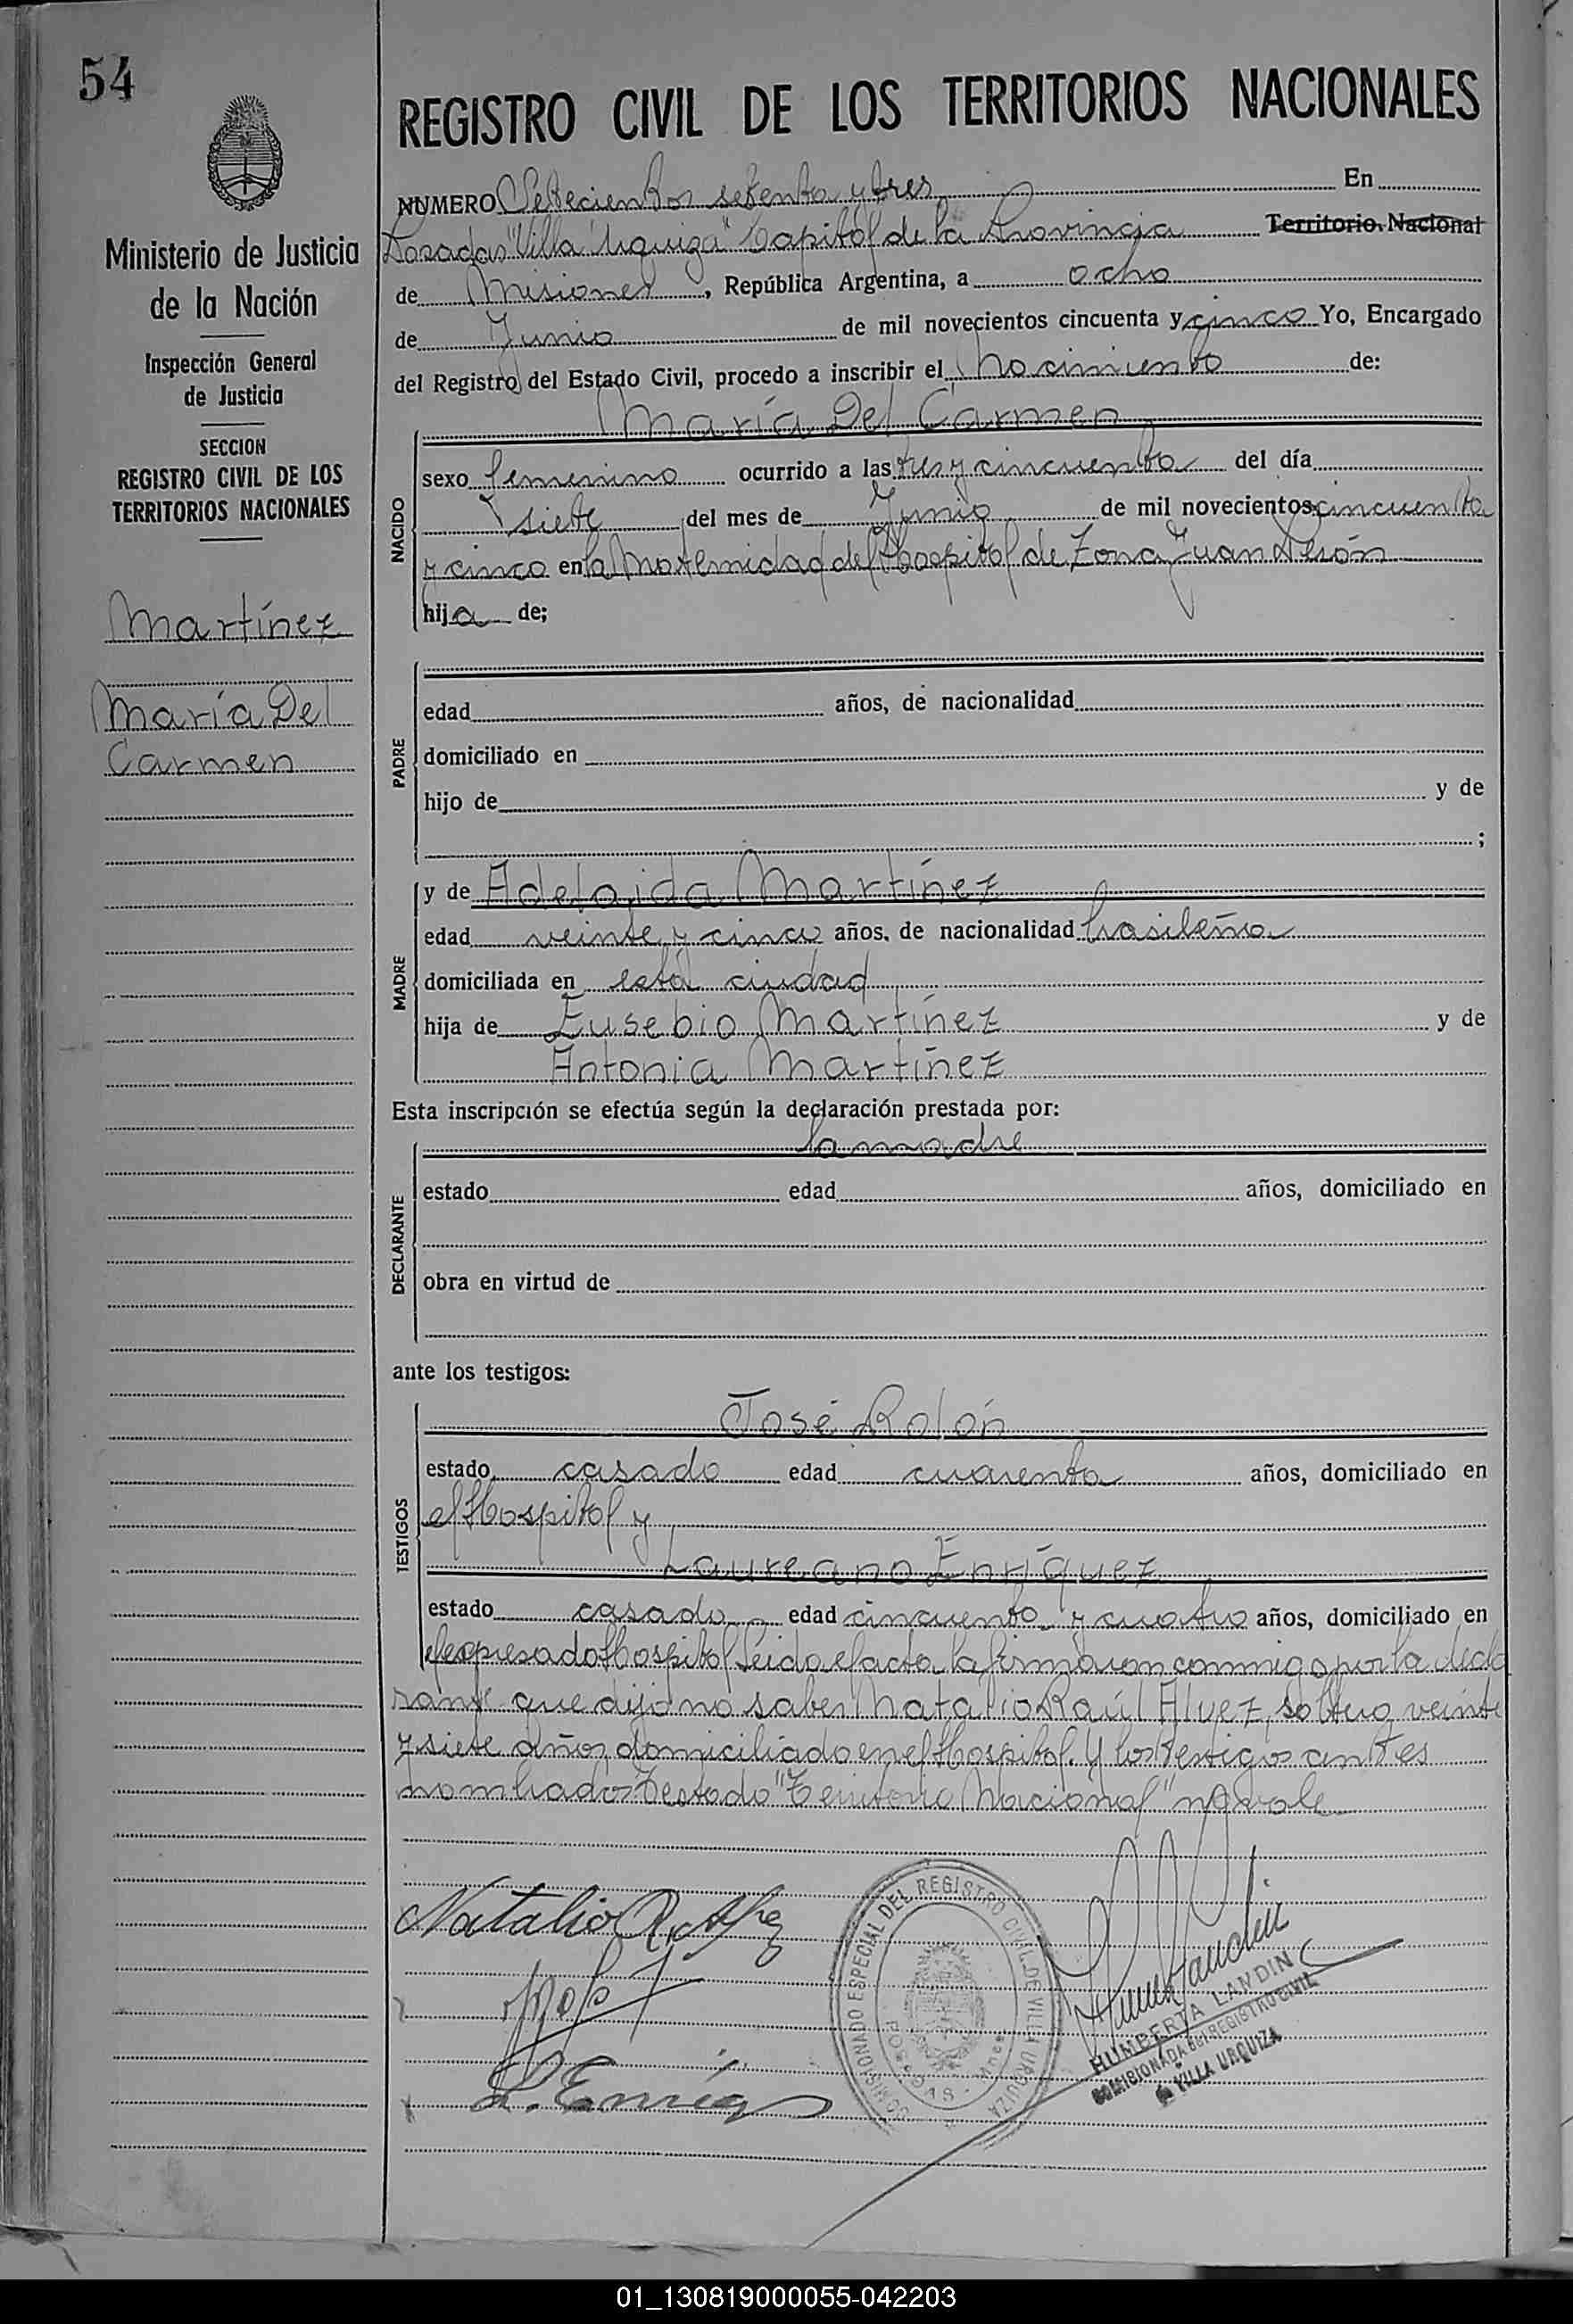 54
Ministerio de Justicia
de la Nación
Inspección General
de Justicia
SECCION
REGISTRO CIVIL DE LOS
TERRITORIOS NACIONALES
Martínez
María Del
Carmen
REGISTRO CIVIL DE LOS TERRITORIOS NACIONALES
NUMERO Setecientos setenta y tres En
Posadas "Villa Urquiza" Capital de la Provincia Territorio Nacional
de Misiones, República Argentina, a ocho
de Junio de mil novecientos cincuenta y cinco Yo, Encargado
del Registro del Estado Civil, procedo a inscribir el Nacimiento de:
María Del Carmen
NACIDO
sexo femenino ocurrido a las tres y cincuenta del día
siete del mes de Junio de mil novecientos cincuenta
y cinco en la Maternidad del Hospital de Zona Juan Perón
hija de;
PADRE
edad años, de nacionalidad
domiciliado en
hijo de y de
;
MADRE
y de Adelaida Martínez
edad veinte y cinco años, de nacionalidad brasileña
domiciliada en esta ciudad
hija de Eusebio Martínez y de
Antonia Martínez
Esta inscripción se efectúa según la declaración prestada por:
la madre
DECLARANTE
estado edad años, domiciliado en
obra en virtud de
ante los testigos:
TESTIGOS
José Rolón
estado casado edad cuarenta años, domiciliado en
el Hospital y
Laureano Enríquez
estado casado edad cincuenta y cuatro años, domiciliado en
el expresado Hospital. Leida el acta, la firmaron conmigo por la decla
rante que dijo no saber Natalio Raúl Alvez, soltero, veinte
y siete años, domiciliado en el Hospital. Y los testigos antes
nombrados Testado "Territorio Nacional" no vale
Natalio R. Alvez
L. Enríquez
COMISIONADO ESPECIAL DEL REGISTRO CIVIL DE VILLA URQUIZA
POSADAS - Mnes
HUMBERTA LANDIN
COMISIONADA del REGISTRO CIVIL
VILLA URQUIZA
01_130819000055-042203